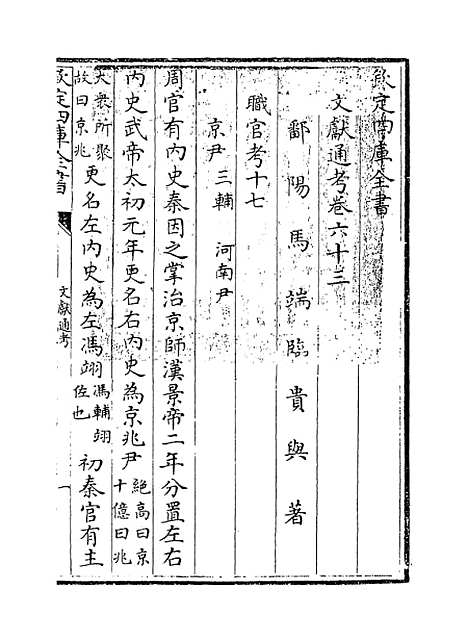 欽定四庫全書
文獻通考卷六十三
鄱陽馬端臨貴與著
職官考十七
京尹 三輔 河南尹
周官有內史秦因之掌治京師漢景帝二年分置左右
內史武帝太初元年更名右內史為京兆尹絕高曰京十億曰兆
大衆所聚故曰京兆更名左內史為左馮翊馮輔翊佐也初秦官有主
欽定四庫全書
文獻通考
一